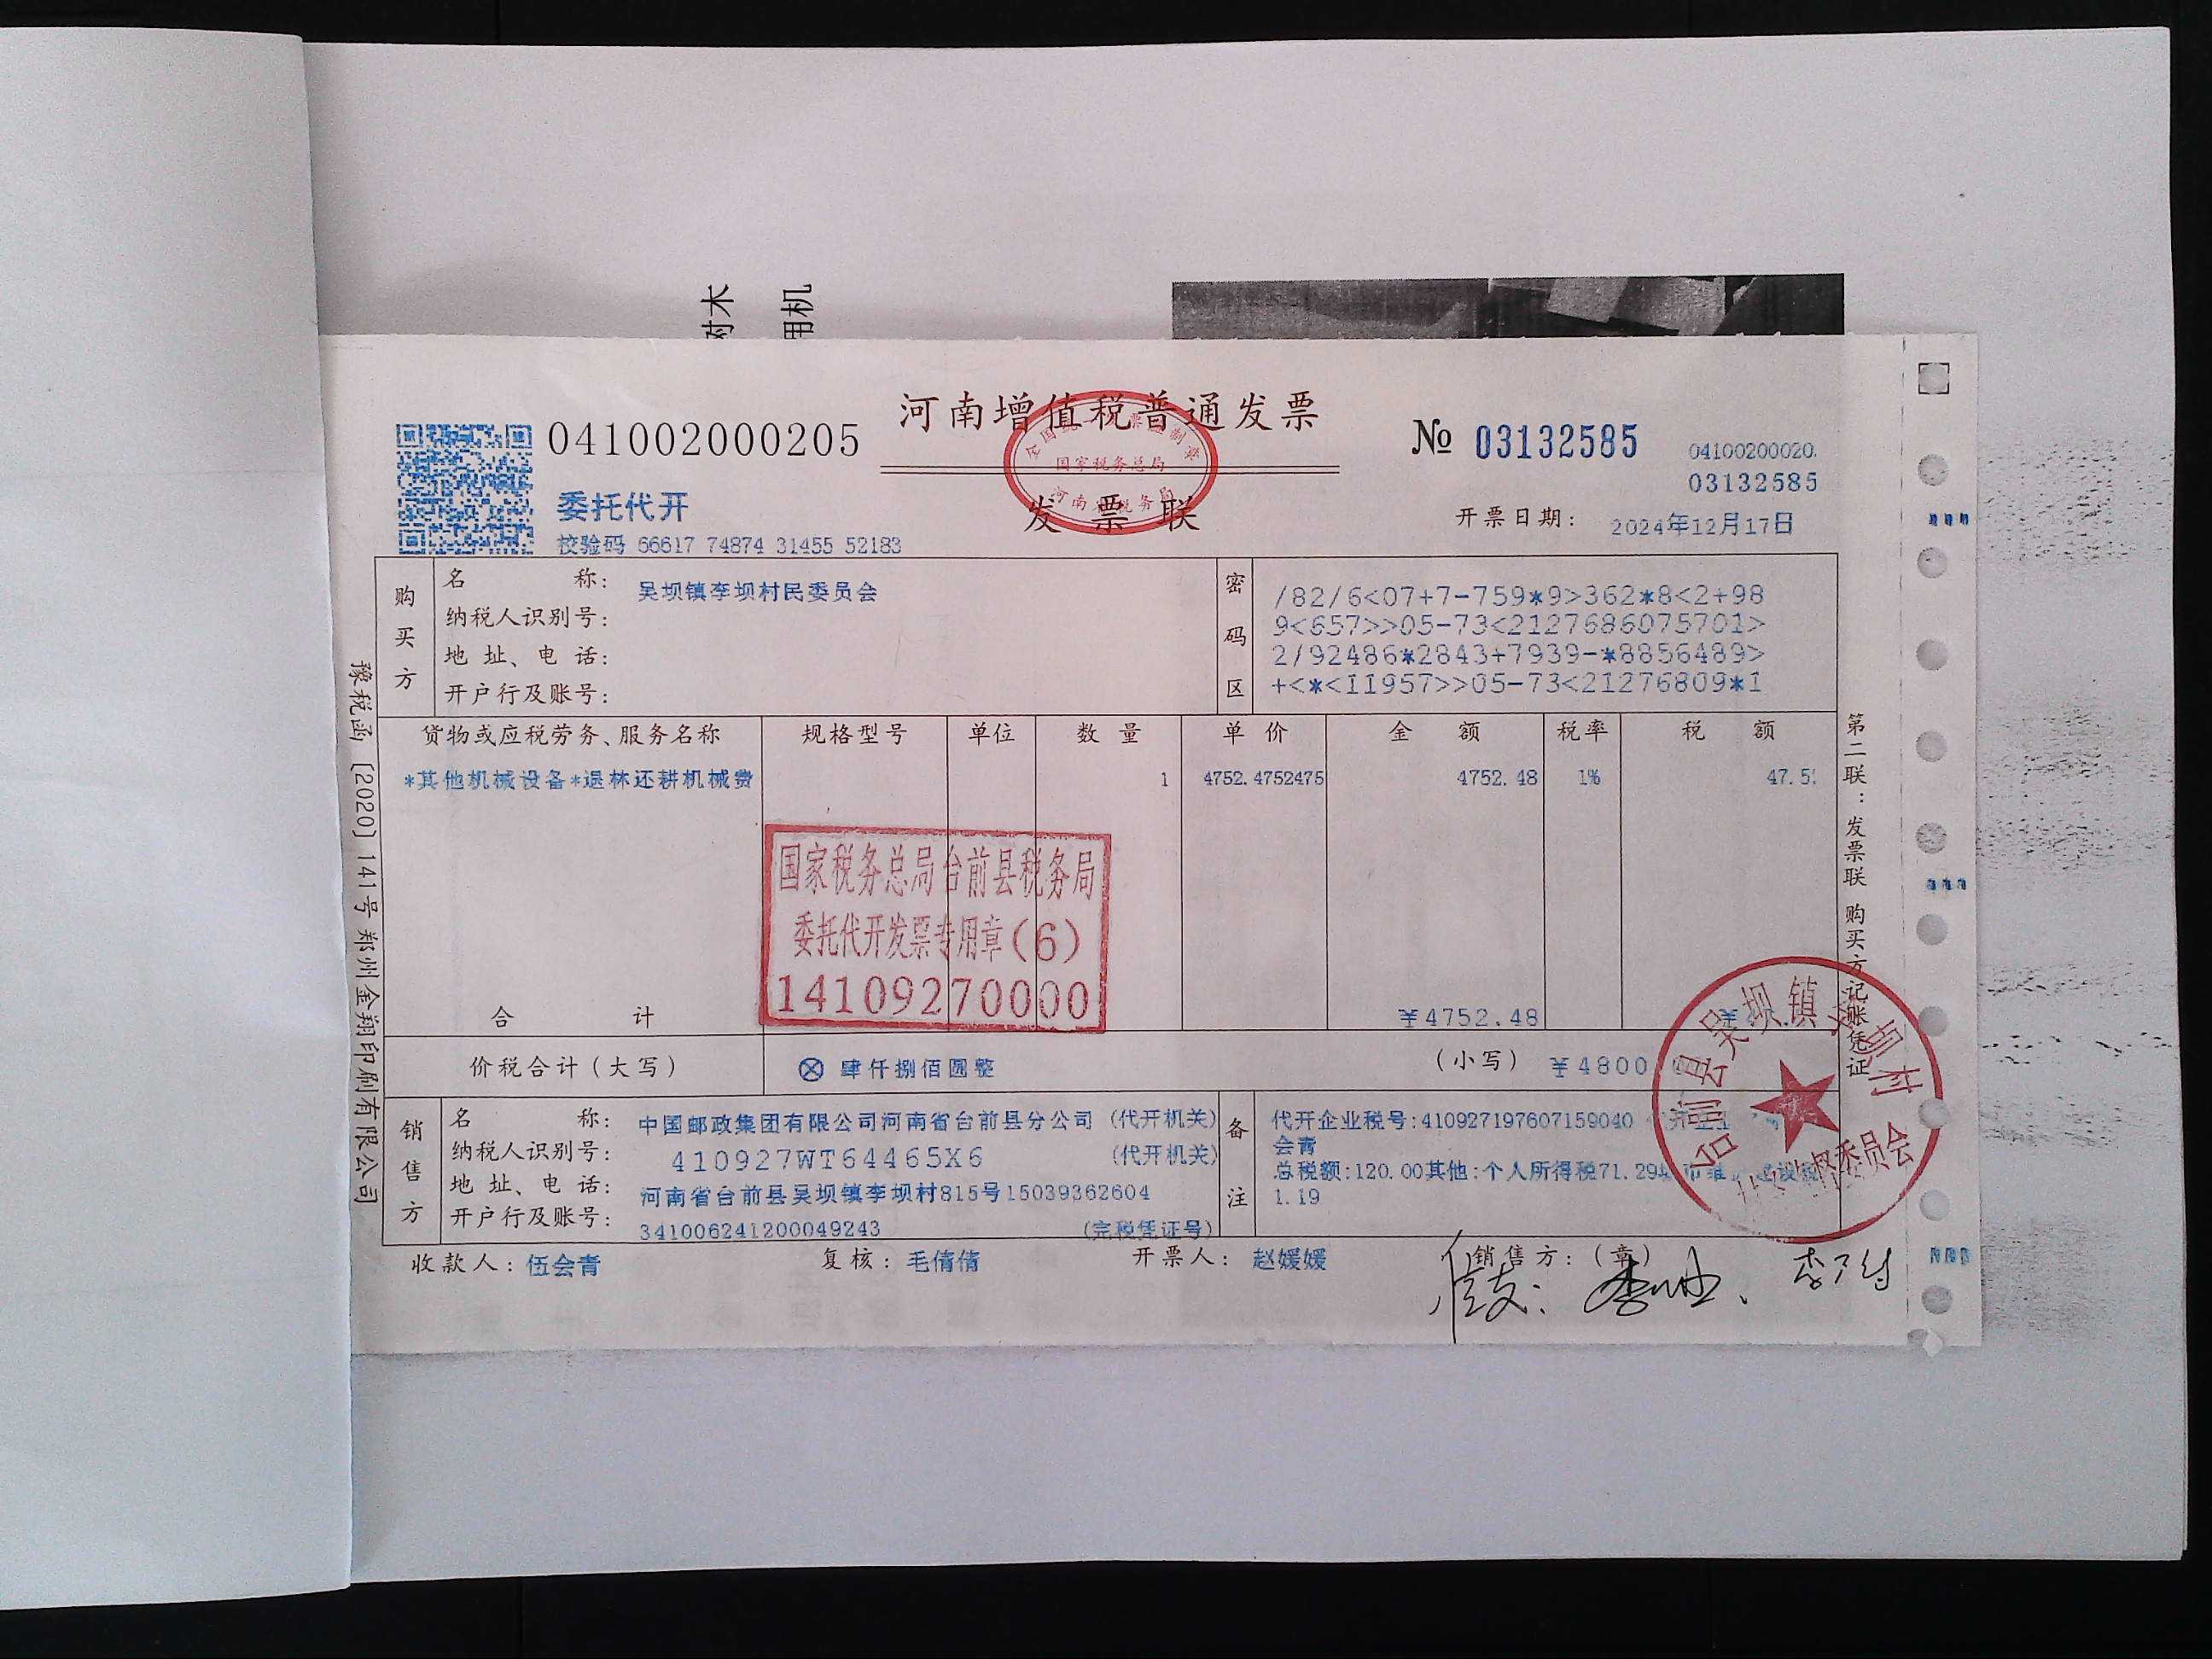 对木
用机
河南增值税普通发票
041002000205
№ 03132585
04100200020
03132585
委托代开
发票联
国家税务总局
开票日期: 2024年12月17日
校验码 66617 74874 31455 52183
购买方
名称: 吴坝镇李坝村民委员会
纳税人识别号:
地址、电话:
开户行及账号:
密码区
/82/6<07+7-759*9>362*8<2+98
9<657>>05-73<2127686075701>
2/92486*2843+7939-*8856489>
+<*<11957>>05-73<21276809*1
货物或应税劳务、服务名称 规格型号 单位 数量 单价 金额 税率 税额
*其他机械设备*退林还耕机械费 1 4752.4752475 4752.48 1% 47.5
国家税务总局台前县税务局
委托代开发票专用章(6)
14109270000
合计 ¥4752.48
价税合计(大写) ⊗ 肆仟捌佰圆整 (小写) ¥4800
销售方
名称: 中国邮政集团有限公司河南省台前县分公司 (代开机关)
纳税人识别号: 410927WT64465X6 (代开机关)
地址、电话: 河南省台前县吴坝镇李坝村815号15039362604
开户行及账号: 341006241200049243 (完税凭证号)
备注
代开企业税号:410927197607159040
会青
总税额:120.00其他:个人所得税71.29
1.19
收款人: 伍会青 复核: 毛倩倩 开票人: 赵媛媛 销售方: (章)
豫税函 [2020] 141号 郑州金翔印刷有限公司
第二联: 发票联 购买方记账凭证